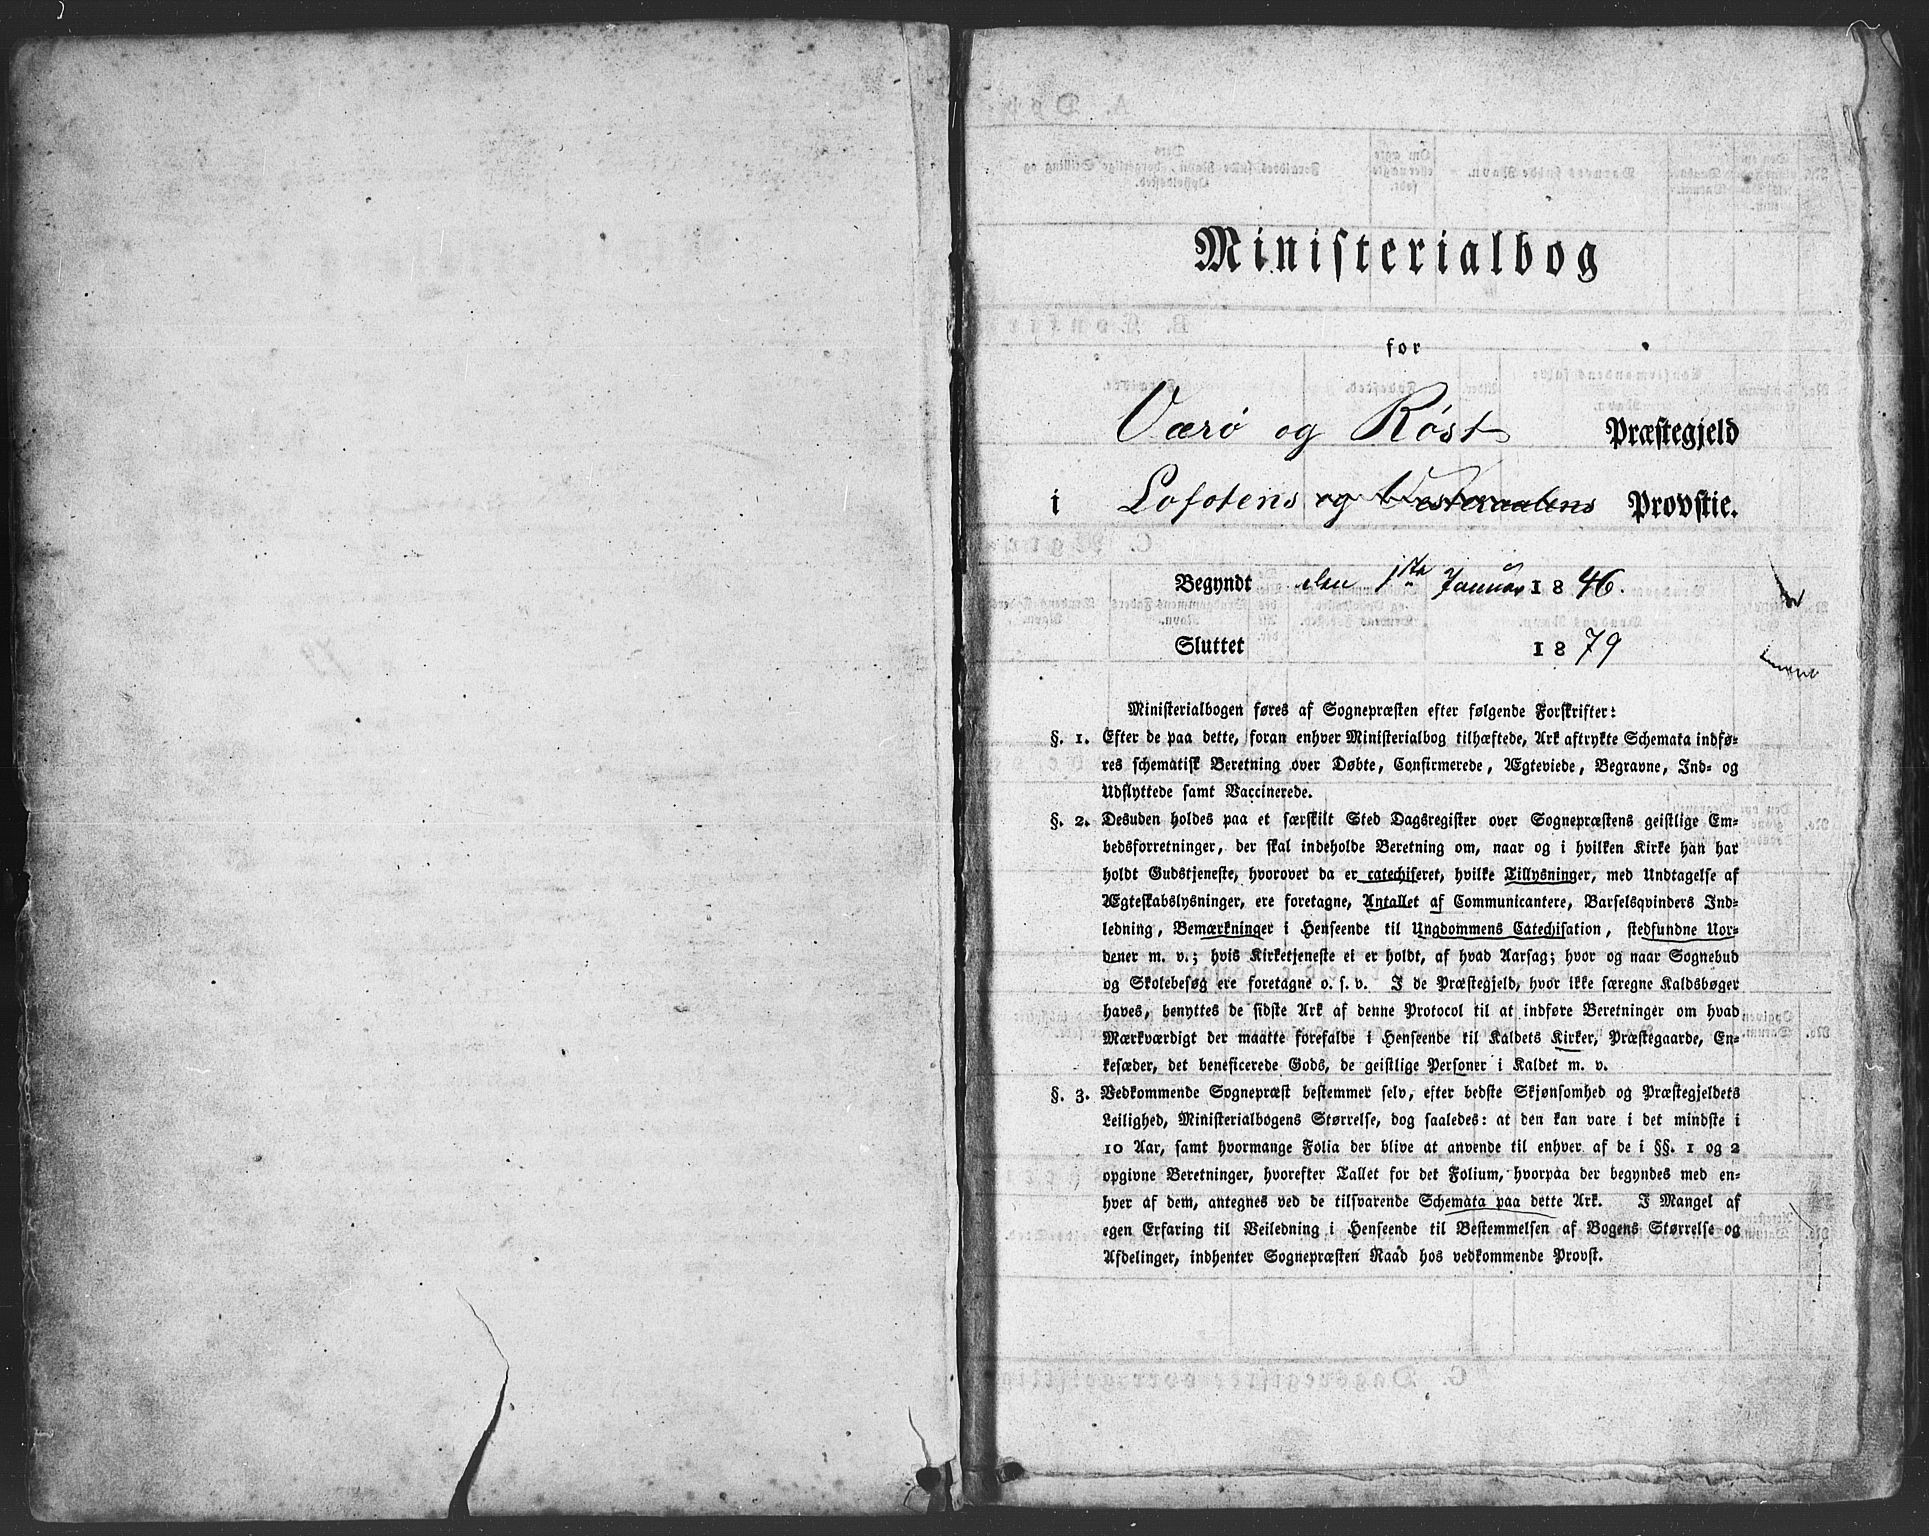 Ministerialbog
for
Værö og Röst Præstegjeld
i Lofotens og Vesteraalens Provstie.
Begyndt den 1ste Januar 1846.
Sluttet 1879
Ministerialbogen føres af Sognepræsten efter følgende Forskrifter:
§. 1. Efter de paa dette, foran enhver Ministerialbog tilhæftede, Ark aftrykte Schemata indfø-
res schematisk Beretning over Døbte, Confirmerede, Ægteviede, Begravne, Ind- og
Udflyttede samt Vaccinerede.
§. 2. Desuden holdes paa et særskilt Sted Dagsregister over Sognepræstens geistlige Em-
bedsforretninger, der skal indeholde Beretning om, naar og i hvilken Kirke han har
holdt Gudstjeneste, hvorover da er catechiseret, hvilke Tillysninger, med Undtagelse af
Ægteskabslysninger, ere foretagne, Antallet af Communicantere, Barselqvinders Ind-
ledning, Bemærkninger i Henseende til Ungdommens Catechisation, stedfundne Uor-
dener m. v.; hvis Kirketjeneste ei er holdt, af hvad Aarsag; hvor og naar Sognebud
og Skolebesøg ere foretagne o. s. v. I de Præstegjeld, hvor ikke særegne Kaldsbøger
haves, benyttes de sidste Ark af denne Protocol til at indføre Beretninger om hvad
Mærkværdigt der maatte forefalde i Henseende til Kaldets Kirker, Præstegaarde, En-
kesæder, det beneficerede Gods, de geistlige Personer i Kaldet m. v.
§. 3. Vedkommende Sognepræst bestemmer selv, efter bedste Skjønsomhed og Præstegjeldets
Leilighed, Ministerialbogens Størrelse, dog saaledes: at den kan vare i det mindste i
10 Aar, samt hvormange Folia der blive at anvende til enhver af de i §§. 1 og 2
opgivne Beretninger, hvorefter Tallet for det Folium, hvorpaa der begyndes med en-
hver af dem, antegnes ved de tilsvarende Schemata paa dette Ark. I Mangel af
egen Erfaring til Veiledning i Henseende til Bestemmelsen af Bogens Størrelse og
Afdelinger, indhenter Sognepræsten Raad hos vedkommende Provst.